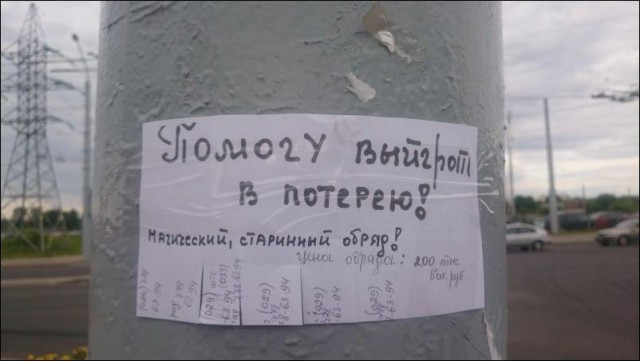 Помогу выйграт
в лотерею!
магический, старинный обряд!
цена обряда: 200 тыс
бел. руб
(029) 778
63-94
778
63-94
(029)
63-94
(029)
63-94
(029)
63-94
(029)
63-94
(029)
63-94